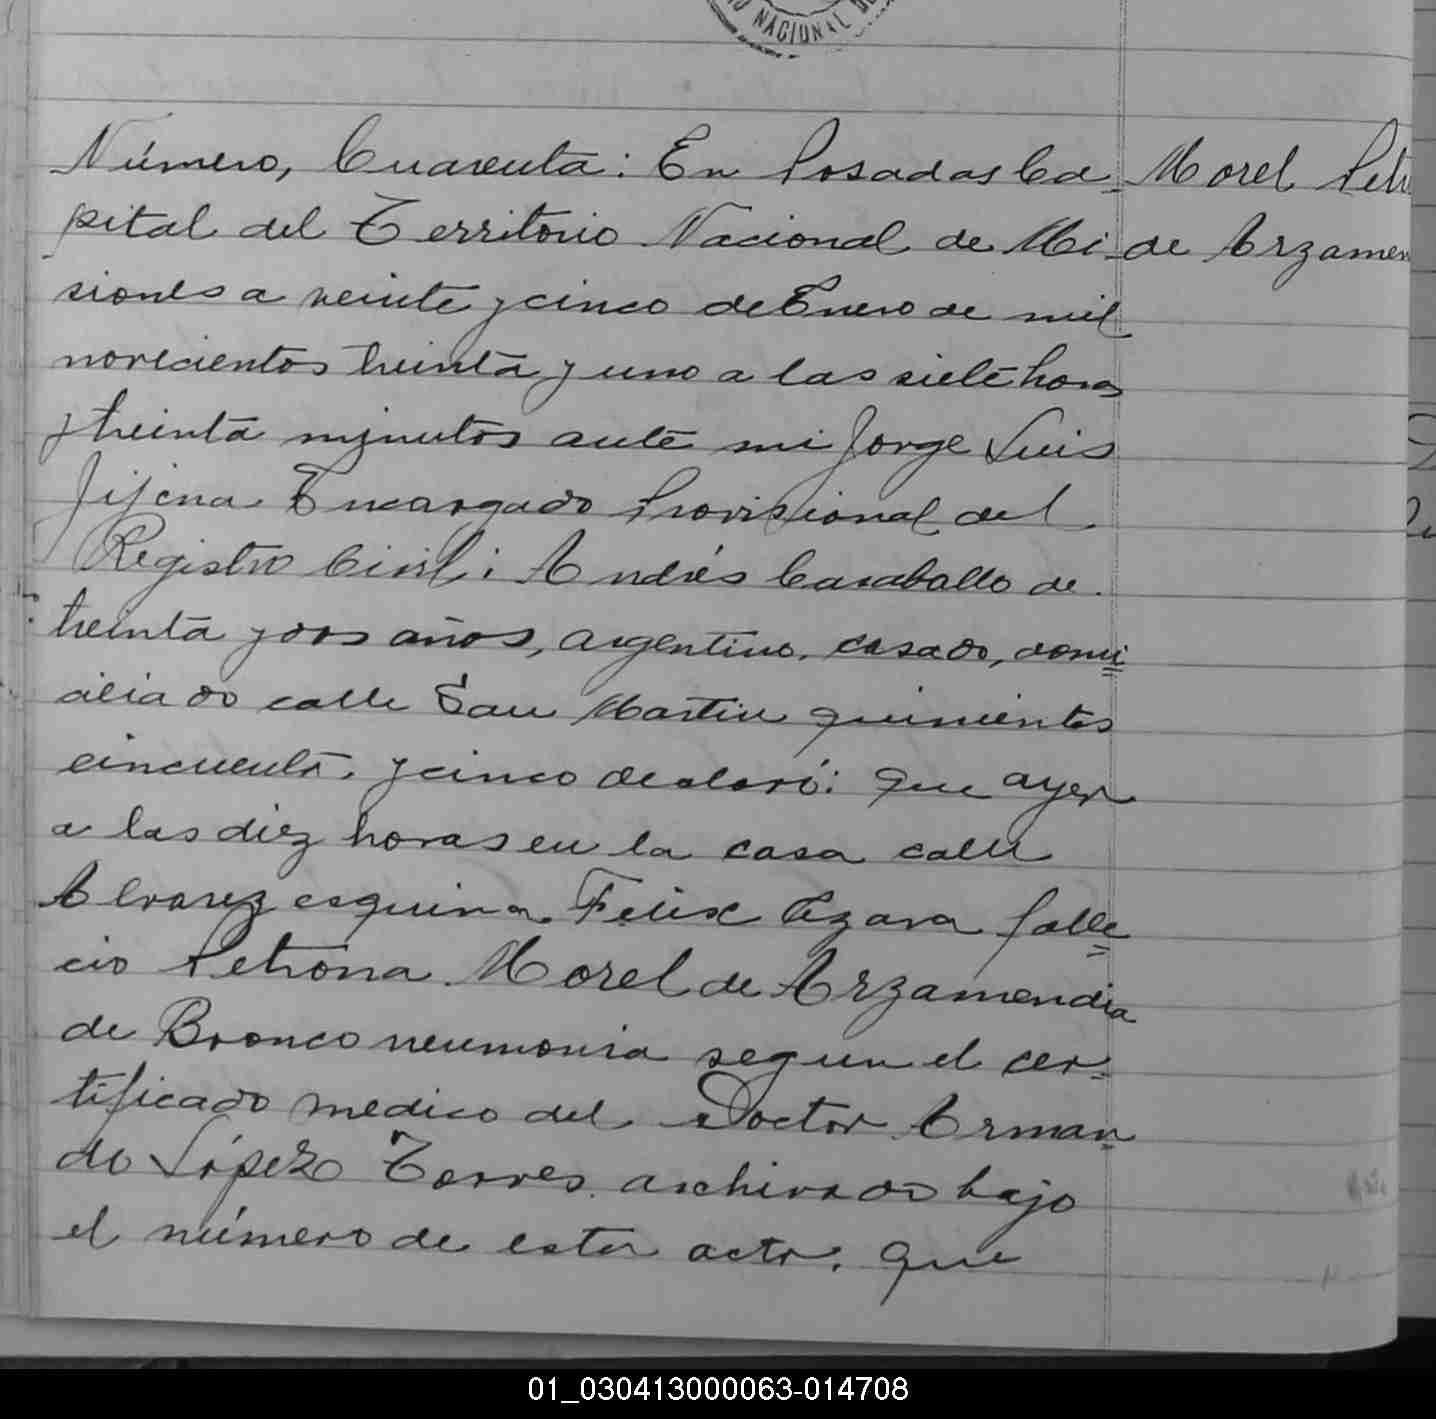 NACIONAL
Número, Cuarenta: En Posadas Ca-
pital del Territorio Nacional de Mi-
siones a veinte y cinco de Enero de mil
novecientos treinta y uno a las siete horas
y treinta minutos ante mi Jorge Luis
Jijena Encargado Provisional del
Registro Civil: Andrés Caraballo de
treinta y dos años, argentino, casado, domi=
ciliado calle San Martin quinientos
cincuenta y cinco declaró: que ayer
a las diez horas en la casa calle
Alvarez esquina Felix Azara falle=
cio Petrona Morel de Arzamendia
de Bronco neumonia segun el cer-
tificado medico del Doctor Arman-
do López Torres archivado bajo
el número de esta acta. que
Morel Petr
de Arzamen
01_030413000063-014708